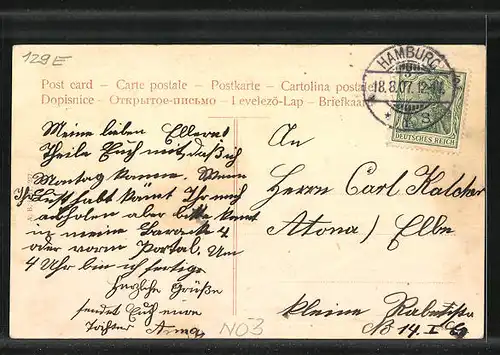 129E
Post card – Carte postale – Postkarte – Cartolina postale
Dopisnice – Открытое-письмо – Levelező-Lap – Briefkaart
HAMBURG
18.8.07. 12-1
* 1 g. *
DEUTSCHES REICH
Meine lieben Eltern!
Theile Euch mit, daß ich
Montag komme. Wenn
Ihr Lust habt könnt Ihr mich
abholen aber bitte kommt
in meine Baracke 4
oder vorm Portal. Um
4 Uhr bin ich fertig.
Herzliche Grüße
sendet Euch eure
Tochter Anna
An
Herrn Carl Kalcher
Altona / Elbe
kleine
N 14. I
NO3